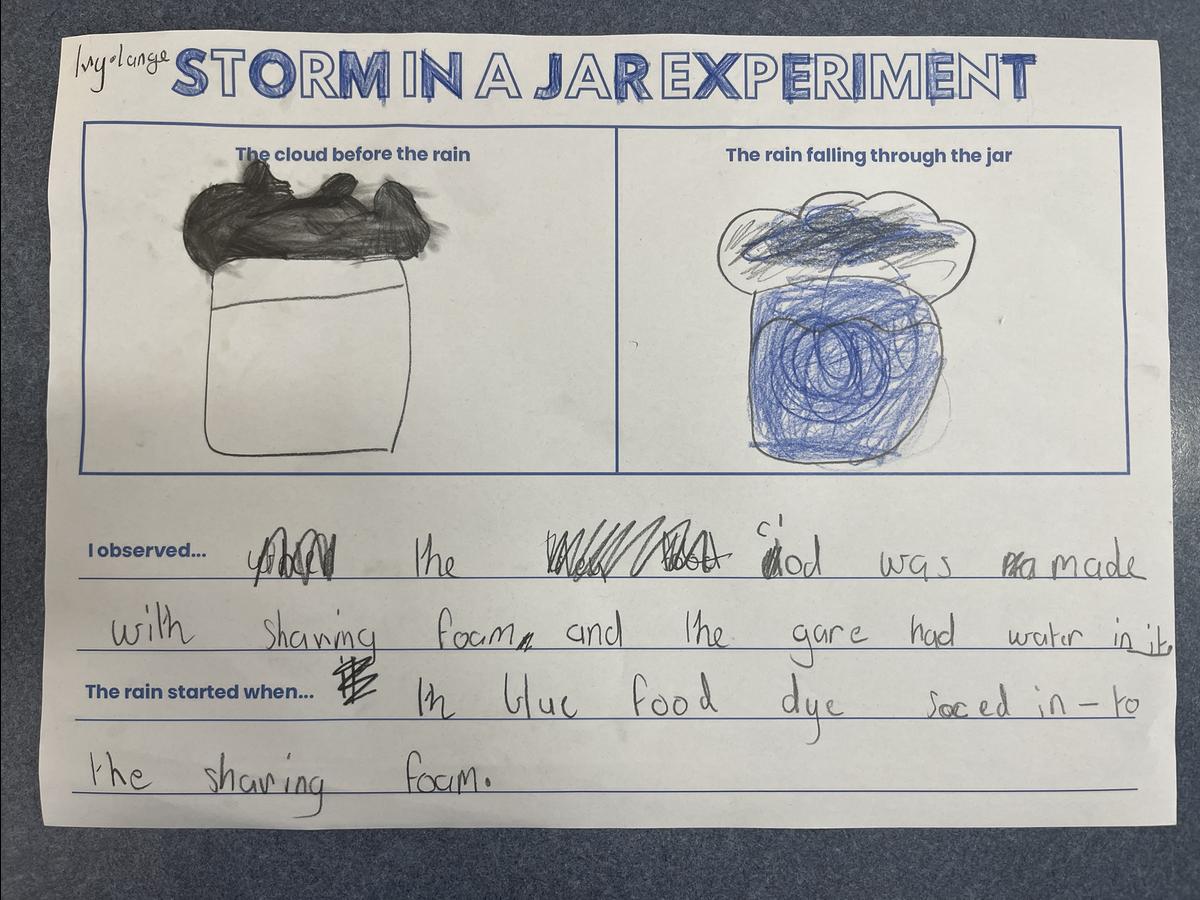 Ivy·lange STORM IN A JAR EXPERIMENT
The cloud before the rain
The rain falling through the jar
I observed... the clod was made
with shaving foam and the gare had water in it.
The rain started when... th blue food dye soced in-to
the shaving foam.